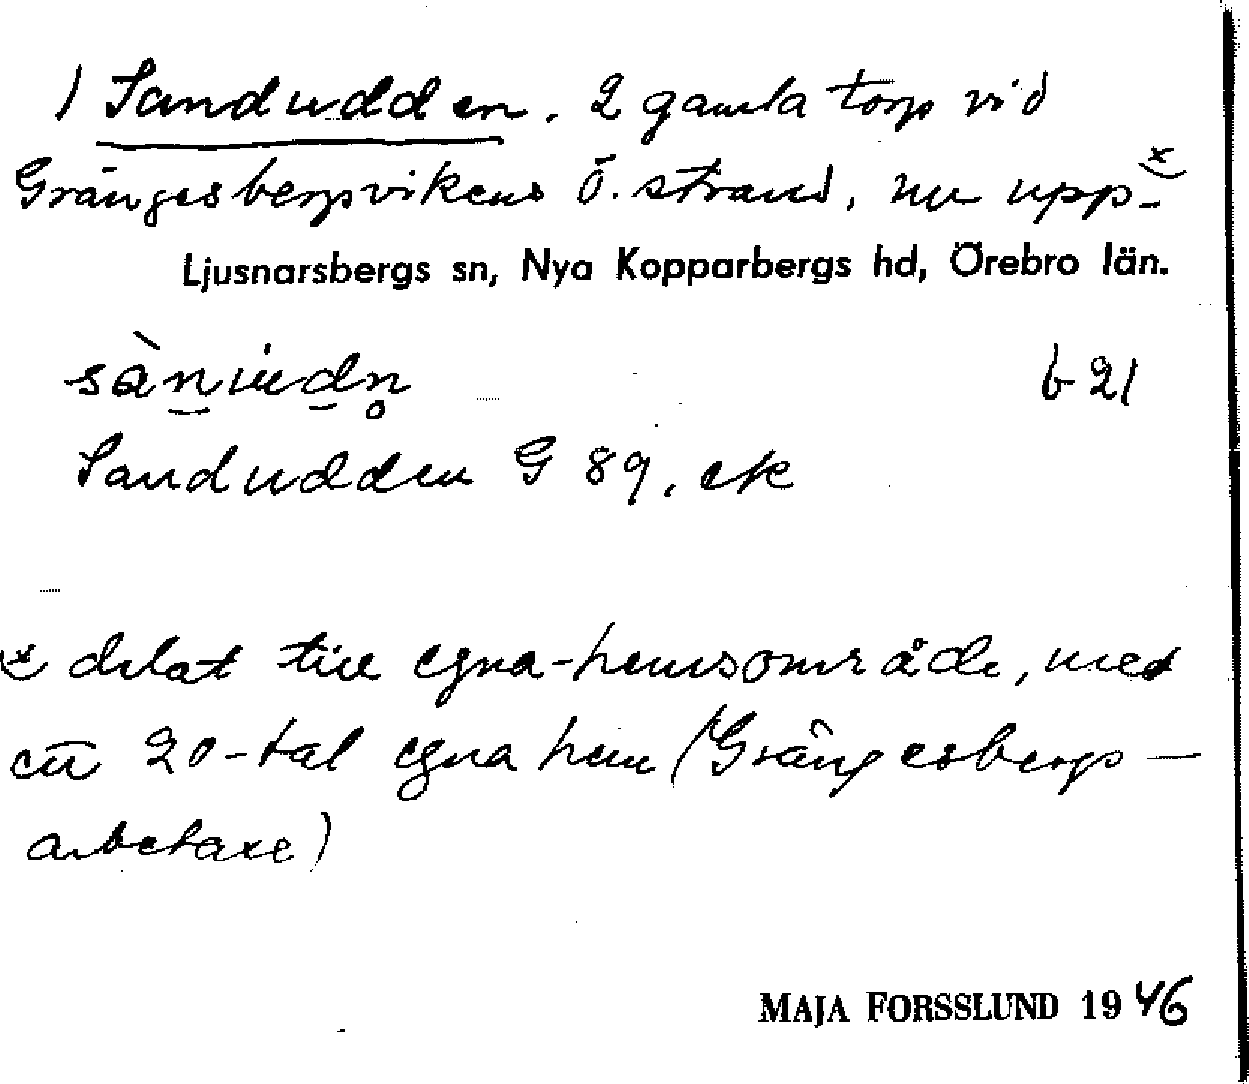 1 Sandudden. 2 gamla torp vid
Grängesbergsvikens ö. strand, nu upp- x
Ljusnarsbergs sn, Nya Kopparbergs hd, Örebro län.
b 21
Sandudden G 89, ek
x delat till egna-hemsområde, med
ett 20-tal egna hem (Grängesbergs-
arbetare)
MAJA FORSSLUND 1946